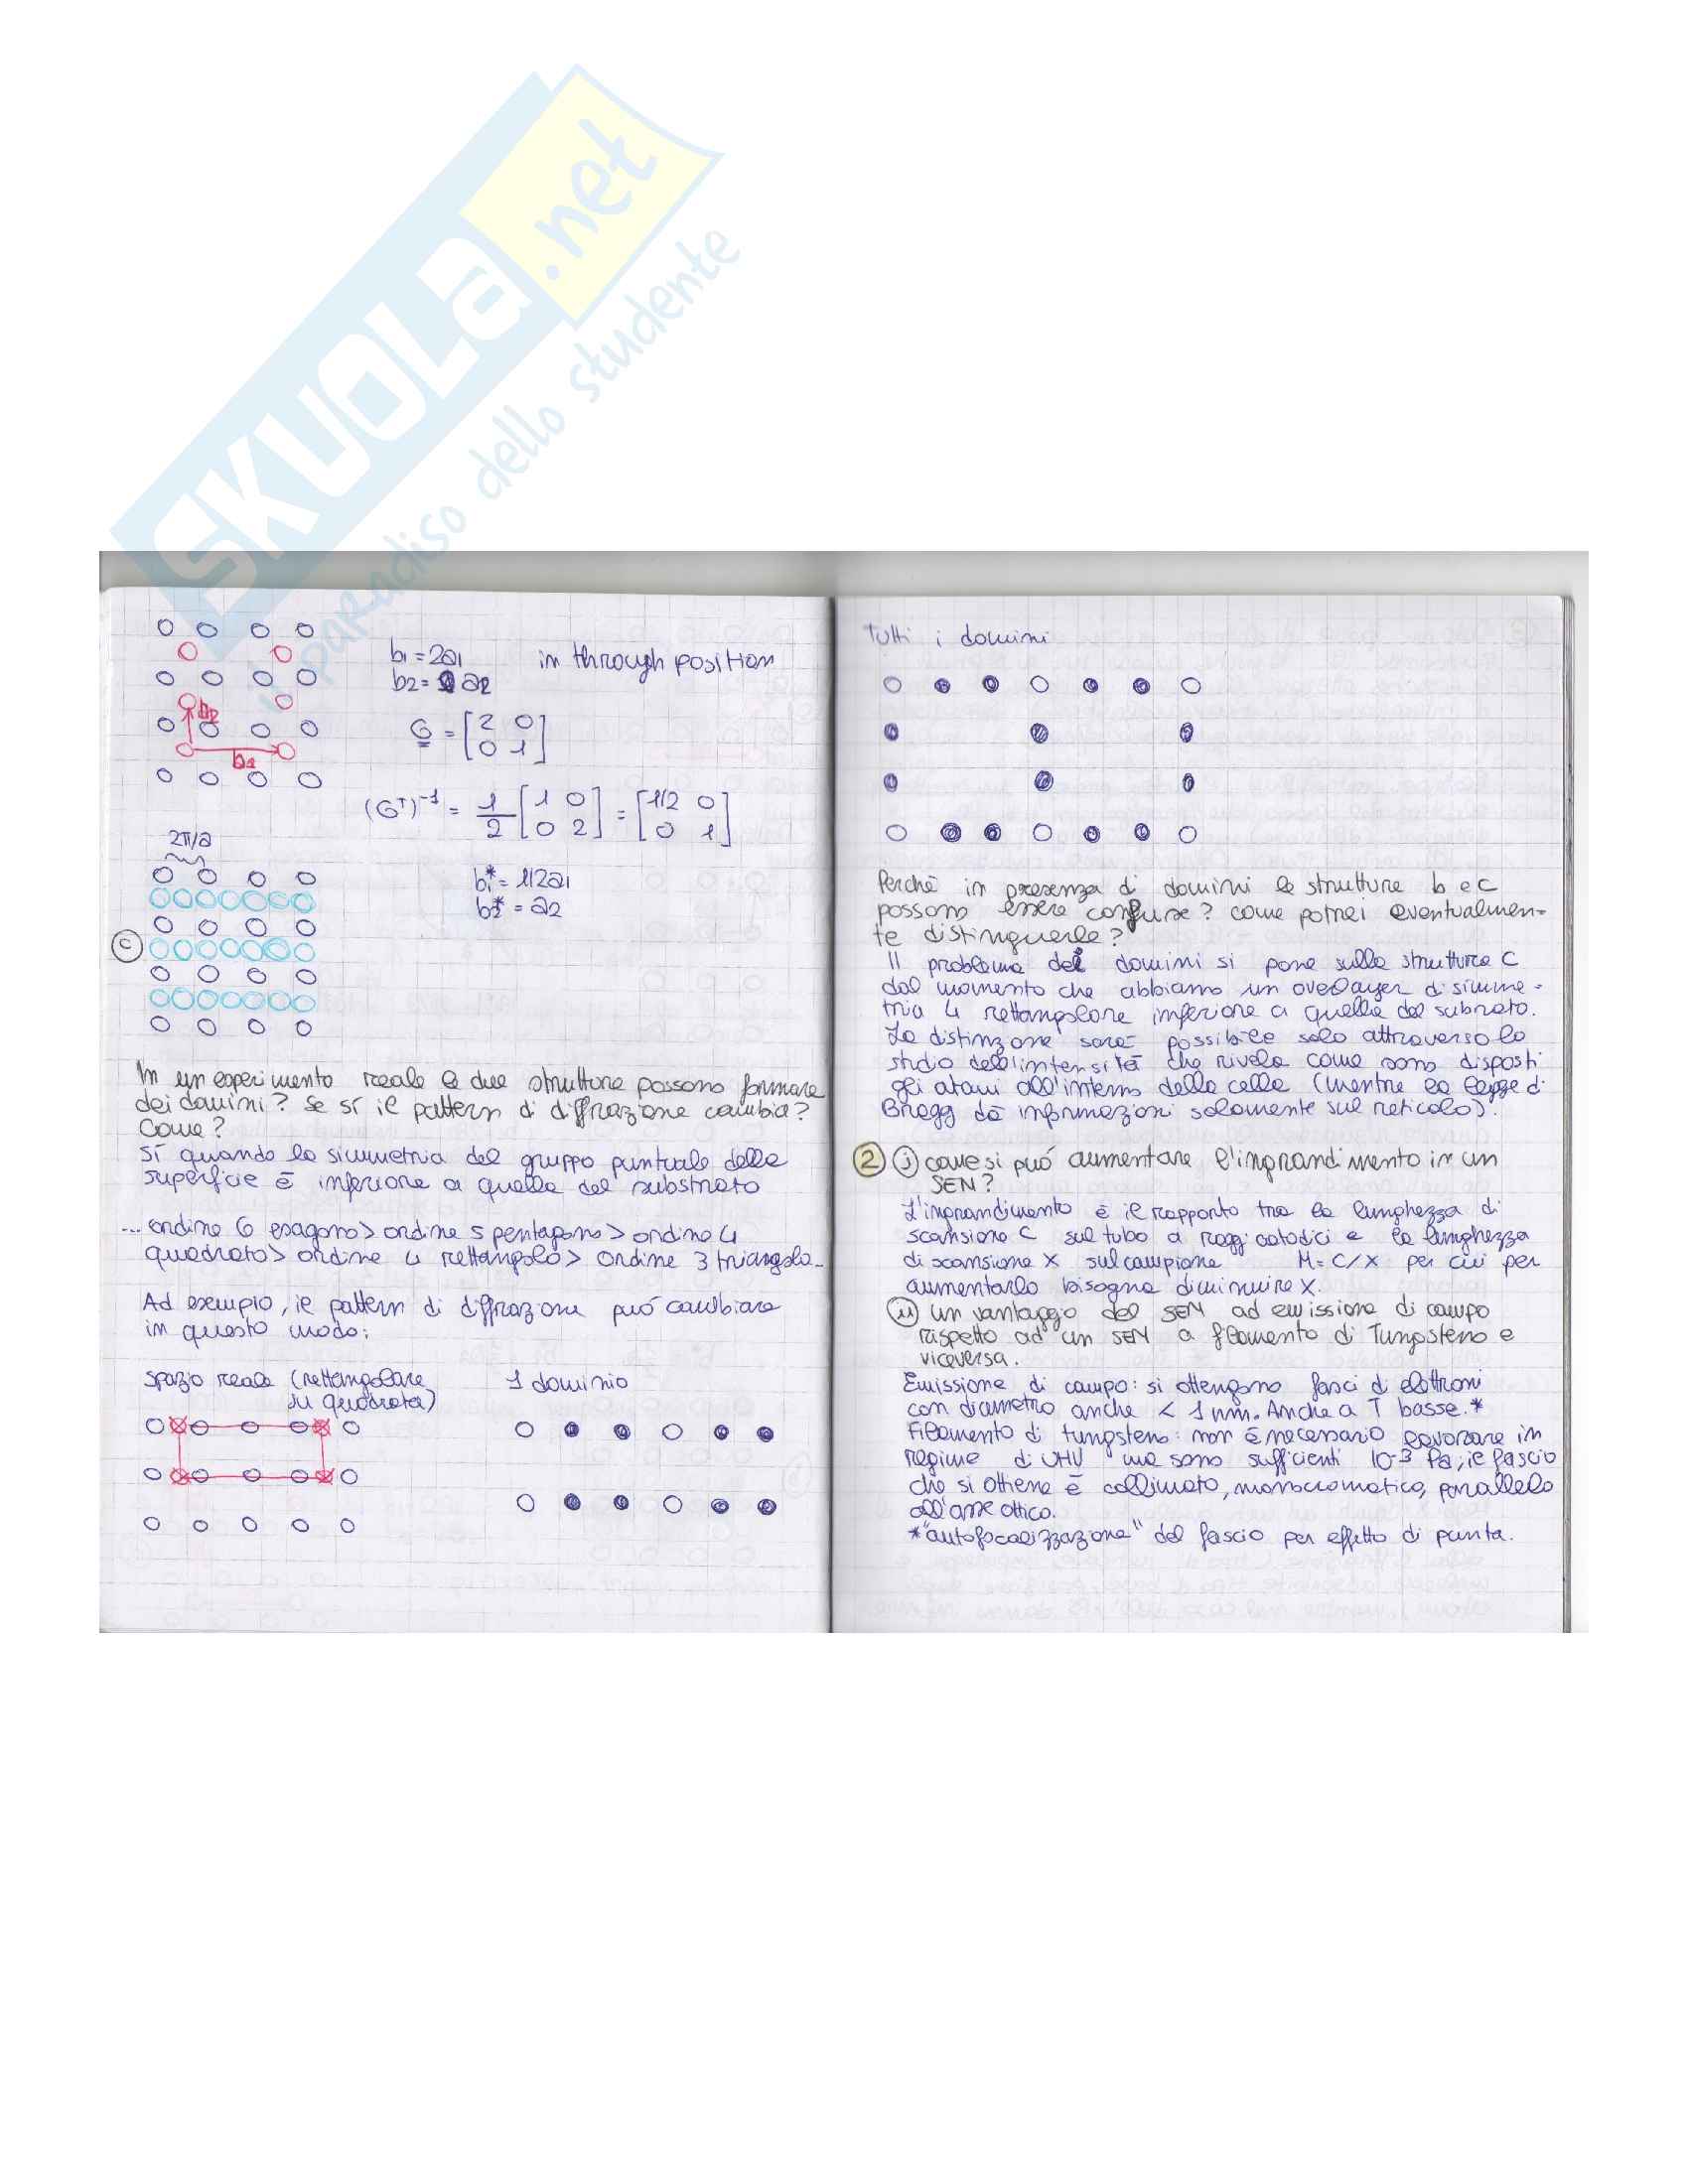 SKUOLA.net
il paradiso dello studente
b1 = 2a1 in through position
b2 = a2
b2
b1
G = [2 0
0 1]
(G^T)^-1 = 1/2 [1 0
0 2] = [1/2 0
0 1]
2π/a
b1* = 1/2a1
b2* = a2
c
In un esperimento reale le due strutture possono formare
dei domini? Se sí il pattern di diffrazione cambia?
Come?
Sí quando la simmetria del gruppo puntuale della
superficie è inferiore a quella del substrato
... ordine 6 esagono > ordine 5 pentagono > ordine 4
quadrato > ordine 4 rettangolo > ordine 3 triangolo...
Ad esempio, il pattern di diffrazione può cambiare
in questo modo:
spazio reale (rettangolare
su quadrata)
1 dominio
Tutti i domini
Perché in presenza di domini le strutture b e c
possono essere confuse? come potrei eventualmen-
te distinguerle?
Il problema dei domini si pone sulla struttura C
dal momento che abbiamo un overlayer di simme-
tria 4 rettangolare inferiore a quella del subrato.
La distinzione sarà possibile solo attraverso lo
studio dell'intensità che rivela come sono disposti
gli atomi all'interno della cella (mentre la legge di
Bragg dà informazioni solamente sul reticolo).
2 i come si può aumentare l'ingrandimento in un
SEM?
L'ingrandimento è il rapporto tra la lunghezza di
scansione C sul tubo a raggi catodici e la lunghezza
di scansione X sul campione M = C/X per cui per
aumentarlo bisogna diminuire X.
ii un vantaggio del SEM ad emissione di campo
rispetto ad un SEM a filamento di Tungsteno e
viceversa.
Emissione di campo: si ottengono fasci di elettroni
con diametro anche < 1 nm. Anche a T basse.*
Filamento di tungsteno: non è necessario lavorare in
regime di UHV ma sono sufficienti 10^-3 Pa; il fascio
che si ottiene è collimato, monocromatico, parallelo
all'asse ottico.
*"autofocalizzazione" del fascio per effetto di punta.